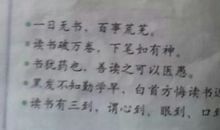 一日无书，百事荒芜。
读书破万卷，下笔如有神。
书犹药也，善读之可以医愚。
黑发不知勤学早，白首方悔读书迟
读书有三到，谓心到、眼到、口到